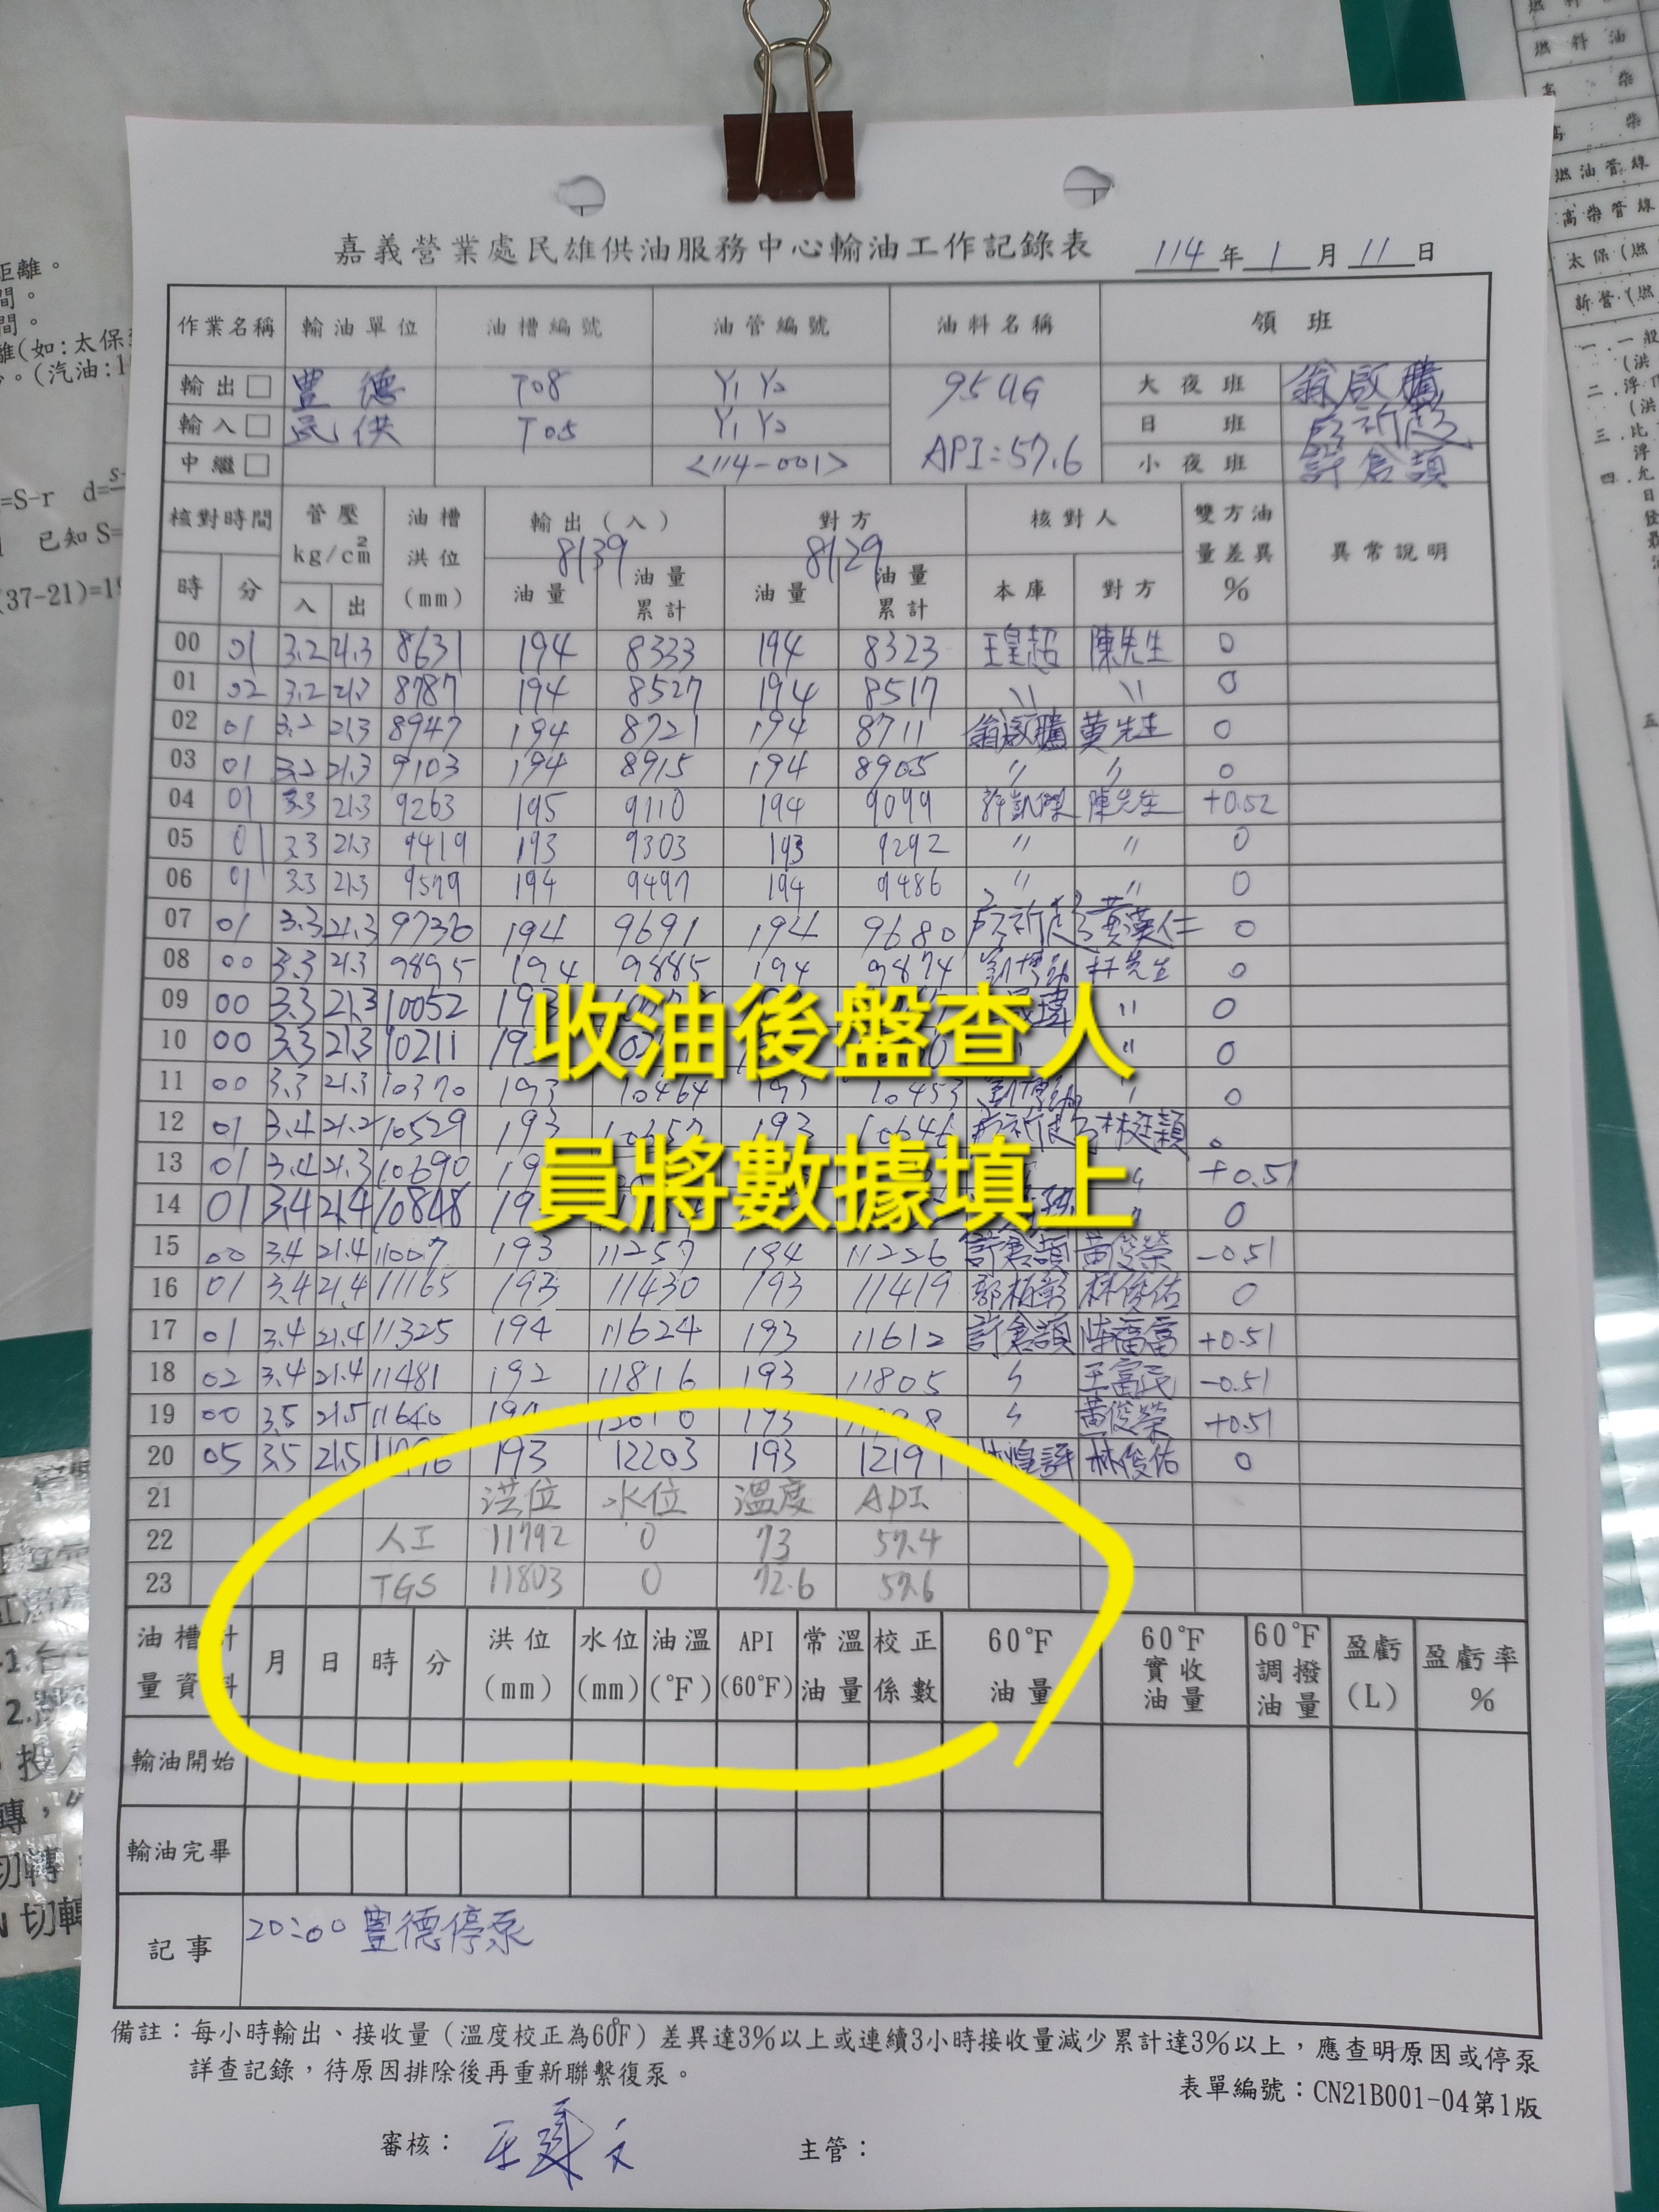 嘉義營業處民雄供油服務中心輸油工作記錄表 114年1月11日
作業名稱 輸油單位 油槽編號 油管編號 油料名稱 領班
輸出□ 豐德 T08 Y1 Y2 95UG 大夜班 翁啟騰
輸入□ 民供 T05 Y1 Y2 日班
中繼□ <114-001> API:57.6 小夜班
核對時間 管壓 kg/cm² 油槽洪位(mm) 輸出(入) 對方 核對人 雙方油量差異% 異常說明
8139 8129
時 分 入 出 油量 油量累計 油量 油量累計 本庫 對方
00 01 3.2 21.3 8631 194 8333 194 8323 王皇超 陳先生 0
01 02 3.2 21.3 8787 194 8527 194 8517 〃 〃 0
02 01 3.2 21.3 8947 194 8721 194 8711 翁啟騰 黃先生 0
03 01 3.2 21.3 9103 194 8915 194 8905 〃 〃 0
04 01 3.3 21.3 9263 195 9110 194 9099 許凱傑 陳先生 +0.52
05 01 3.3 21.3 9419 193 9303 193 9292 〃 〃 0
06 01 3.3 21.3 9579 194 9497 194 9486 〃 〃 0
07 01 3.3 21.3 9736 194 9691 194 9680 黃漢仁 0
08 00 3.3 21.3 9895 194 9885 194 9874 林先生 0
09 00 3.3 21.3 10052 193 〃 0
10 00 3.3 21.3 10211 〃 0
11 00 3.3 21.3 10370 193 10464 193 10453 〃 0
12 01 3.4 21.2 10529 193 10657 193 10646 0
13 01 3.4 21.3 10690 〃 +0.51
14 01 3.4 21.4 10848 0
15 00 3.4 21.4 11007 193 11257 194 11226 黃俊榮 -0.51
16 01 3.4 21.4 11165 193 11430 193 11419 林俊佑 0
17 01 3.4 21.4 11325 194 11624 193 11612 +0.51
18 02 3.4 21.4 11481 192 11816 193 11805 〃 王富民 -0.51
19 00 3.5 21.5 11640 194 12010 193 〃 黃俊榮 +0.51
20 05 3.5 21.5 193 12203 193 12191 林俊佑 0
收油後盤查人
員將數據填上
21 洪位 水位 溫度 API
22 人工 11792 0 73 57.4
23 TGS 11803 0 72.6 57.6
油槽計量資料 月 日 時 分 洪位(mm) 水位(mm) 油溫(°F) API(60°F) 常溫油量 校正係數 60°F油量 60°F實收油量 60°F調撥油量 盈虧(L) 盈虧率%
輸油開始
輸油完畢
記事 20:00 豐德停泵
備註：每小時輸出、接收量（溫度校正為60°F）差異達3%以上或連續3小時接收量減少累計達3%以上，應查明原因或停泵
詳查記錄，待原因排除後再重新聯繫復泵。
表單編號：CN21B001-04第1版
審核： 主管：